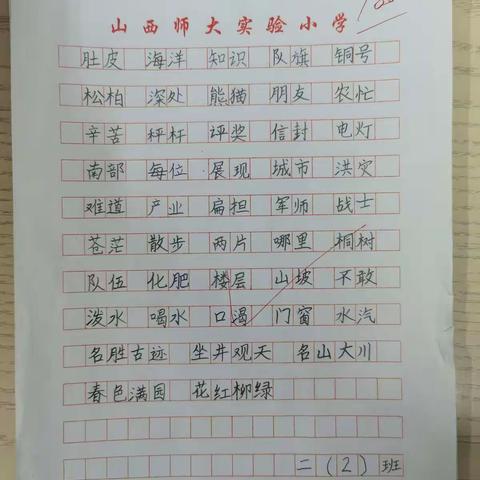 山西师大实验小学
100
肚皮 海洋 知识 队旗 铜号
松柏 深处 熊猫 朋友 农忙
辛苦 秤杆 评奖 信封 电灯
南部 每位 展现 城市 洪灾
难道 产业 扁担 军师 战士
苍茫 散步 两片 哪里 桐树
队伍 化肥 楼层 山坡 不敢
泼水 喝水 口渴 门窗 水汽
名胜古迹 坐井观天 名山大川
春色满园 花红柳绿
二(2)班